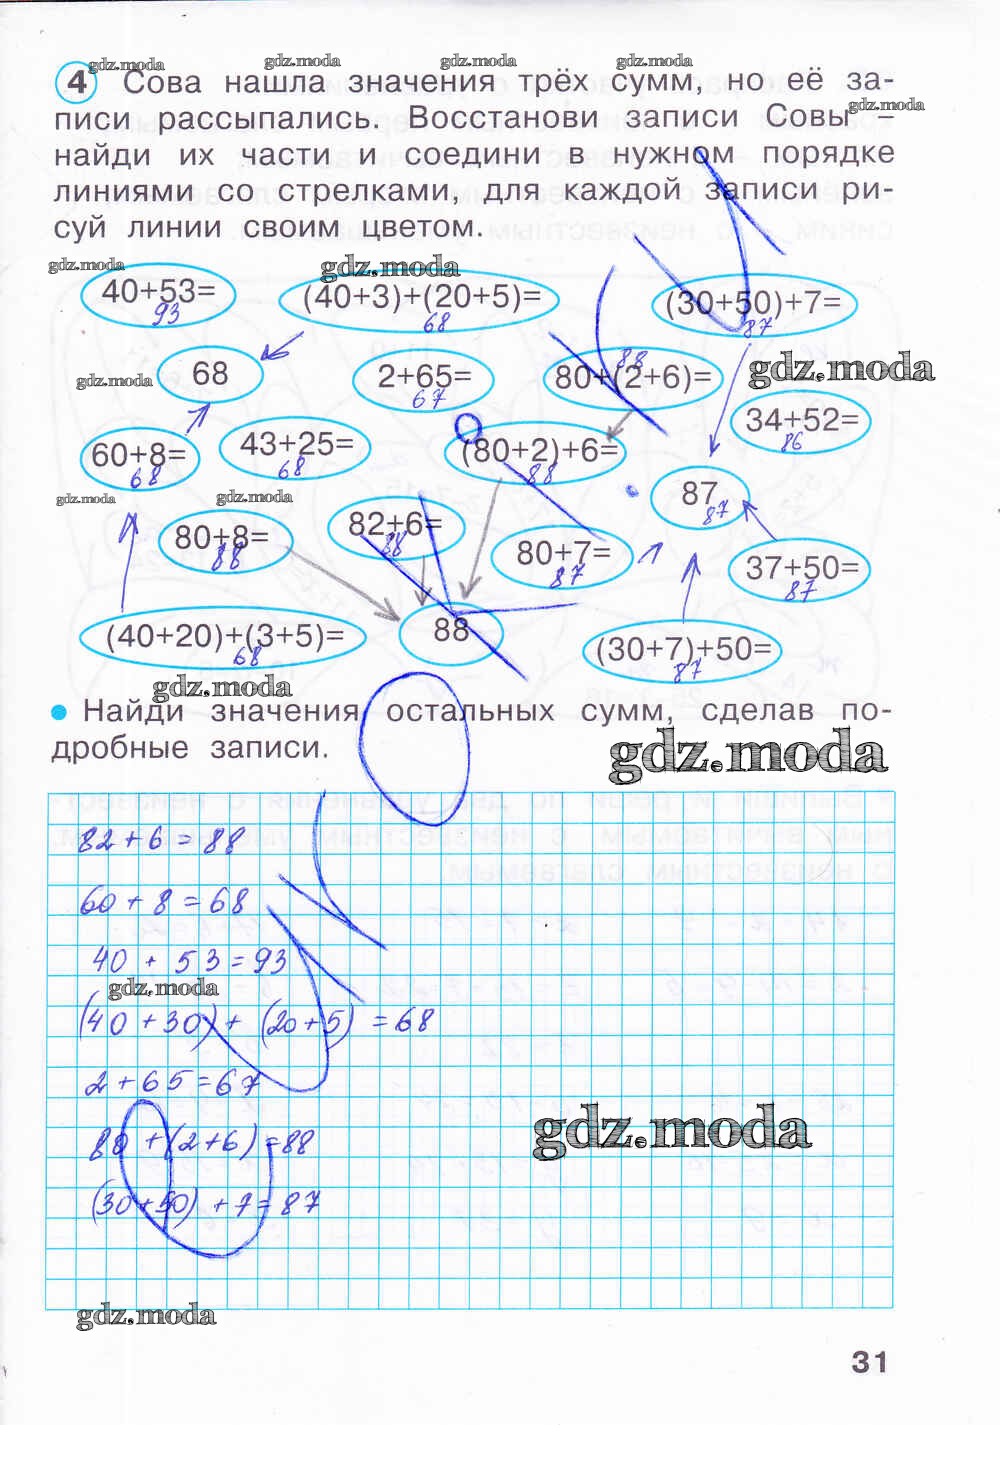 gdz.moda gdz.moda gdz.moda gdz.moda
4 Сова нашла значения трёх сумм, но её за-
gdz.moda
писи рассыпались. Восстанови записи Совы –
найди их части и соедини в нужном порядке
линиями со стрелками, для каждой записи ри-
суй линии своим цветом.
gdz.moda gdz.moda
40+53= (40+3)+(20+5)= (30+50)+7=
93 68 87
68 2+65= 80+(2+6)= 88
gdz.moda 67 gdz.moda
34+52=
86
60+8= 43+25= (80+2)+6=
68 68 88
gdz.moda gdz.moda 87
87
80+8= 82+6= 80+7= 37+50=
88 88 87 87
(40+20)+(3+5)= 88 (30+7)+50=
68 87
gdz.moda
Найди значения остальных сумм, сделав по-
дробные записи.
gdz.moda
82+6=88
60+8=68
40+53=93
gdz.moda
(40+30)+(20+5)=68
2+65=67
80+(2+6)=88
gdz.moda
(30+50)+7=87
gdz.moda
31